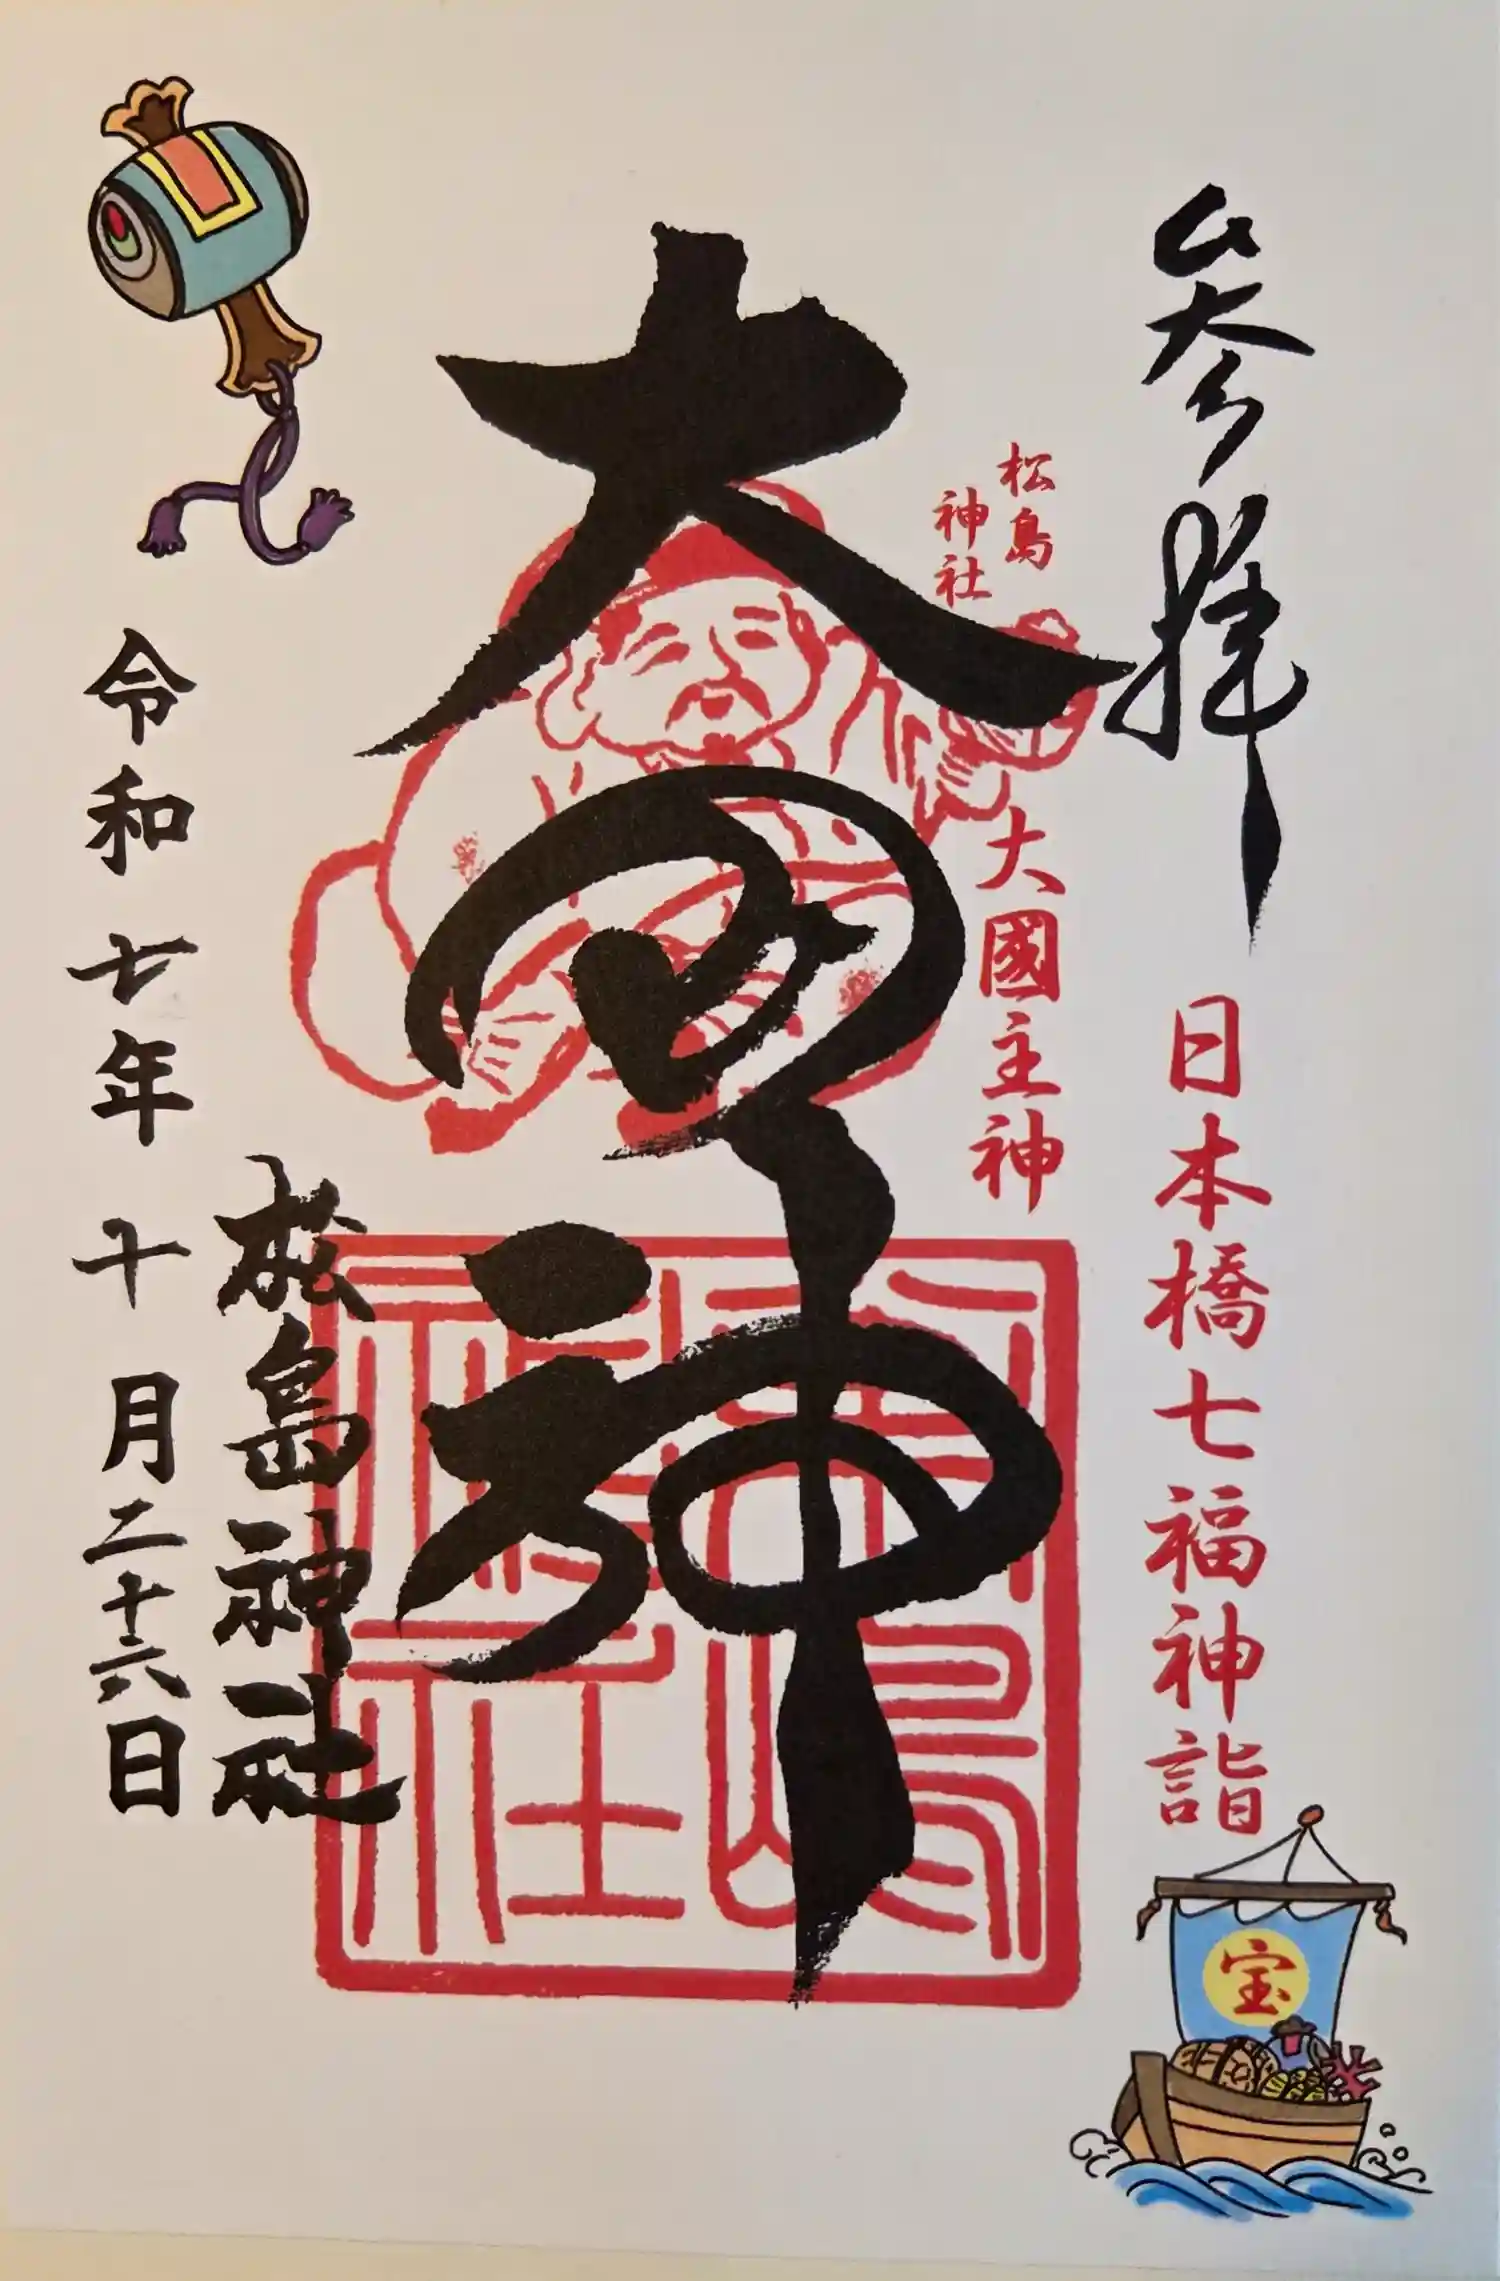 参拝
日本橋七福神詣
宝
松島
神社
大國主神
大国神
松嶋
神社
松島神社
令和七年十月二十六日